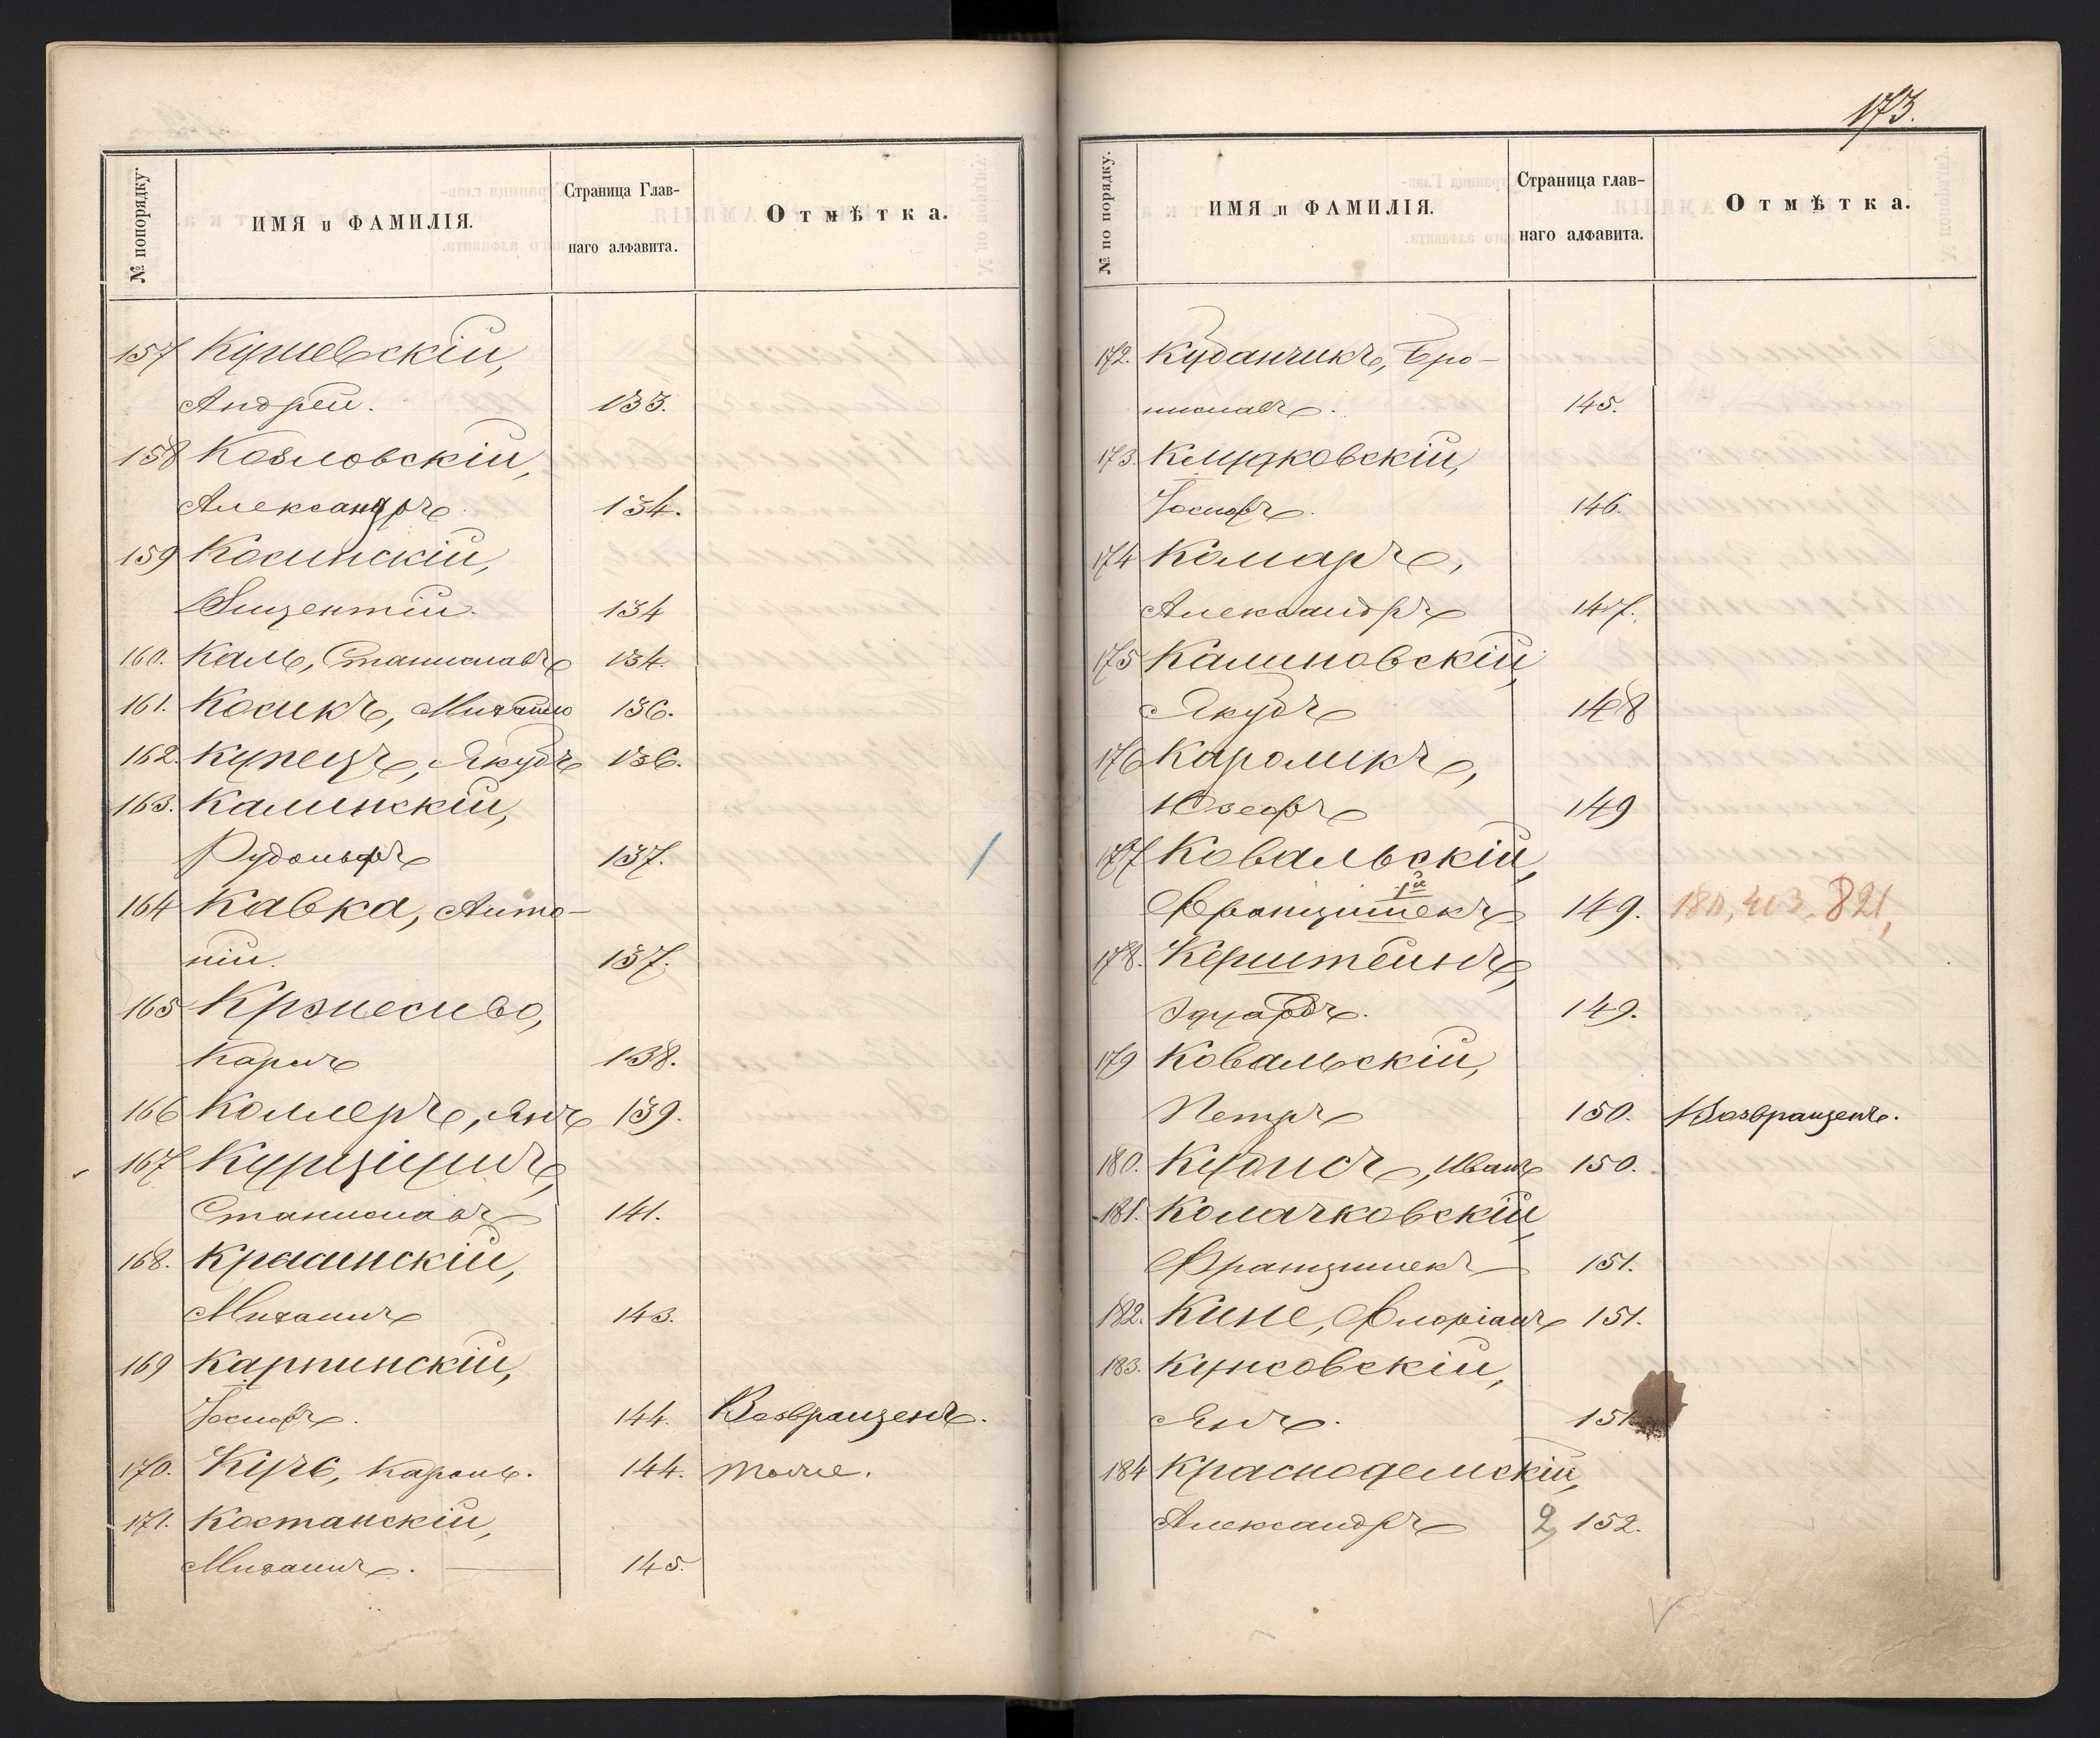 № попорядку.
ИМЯ и ФАМИЛІЯ.
Страница Глав-
наго алфавита.
Отмѣтка.
157 Кушевскій,
Андрей. 133.
158 Козловскій,
Александръ 134.
159 Косинскій,
Вицентій. 134
160. Каль, Станиславъ 134.
161. Косикъ, Михаило 136.
162. Купецъ, Якубъ 136.
163. Калинскій,
Рудольфъ 137.
164 Кавка, Анто-
ній. 137.
165
Карлъ 138.
166 Коллеръ, Янъ 139.
167
Станиславъ 141.
168. Красинскій,
Михаилъ 143.
169 Карпинскій,
Іосифъ. 144. Возвращенъ.
170. Кучъ, Кароль. 144. тоже.
171. Костанскій,
Михаилъ. 145.
173.
№ по порядку.
ИМЯ и ФАМИЛІЯ.
Страница глав-
наго алфавита.
Отмѣтка.
172. Кубанчикъ, Бро-
ниславъ. 145.
173.
Іосифъ. 146.
174 Комаръ,
Александръ 147.
175 Калиновскій,
Якубъ 148
176 Кароликъ,
Юзефъ 149
177 Ковальскій,
Францишекъ 149. 821,
178. Керштейнъ,
Эдуардъ. 149.
179 Ковальскій,
Петръ 150. Возвращенъ.
180. Кубисъ, Иванъ 150.
181. Колачковскій,
Францишекъ 151.
182. Кине, Флоріанъ 151.
183. Кунсовскій,
Янъ. 151
184 Краснодемскій,
Александръ 2 152.